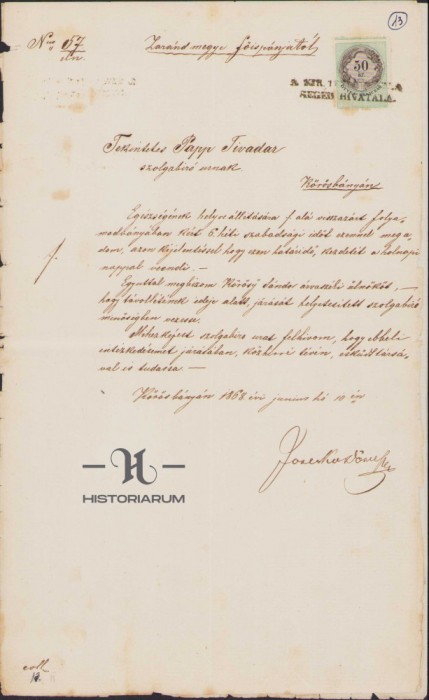 13
Nro 67
eln.
Zaránd megye főispánjától
50
kr.
HIVATALA.
Tekintetes Papp Tivadar
szolgabiró urnak.
Kőrösbányán
Egészségének helyreállitására f. alá visszazárt folya-
modványában kért 6. heti szabadsági időt ezennel mega-
dom, azon kijelentéssel hogy ezen határidő, kezdetét a holnapi
nappal veendi. —
Egyuttal megbizom Kőrösy Sándor árvaszéki ülnököt, —
hogy távollétének ideje alatt, járását helyettesitett szolgabiró
minőségben vezesse.
Miheztképest szolgabiró urat felhivom, hogy ebbeli
intézkedésemet járásában, közhirré tévén, esküdttársá-
val is tudassa —
Kőrösbányán 1868 évi junius hó 10 én
HISTORIARUM
coll